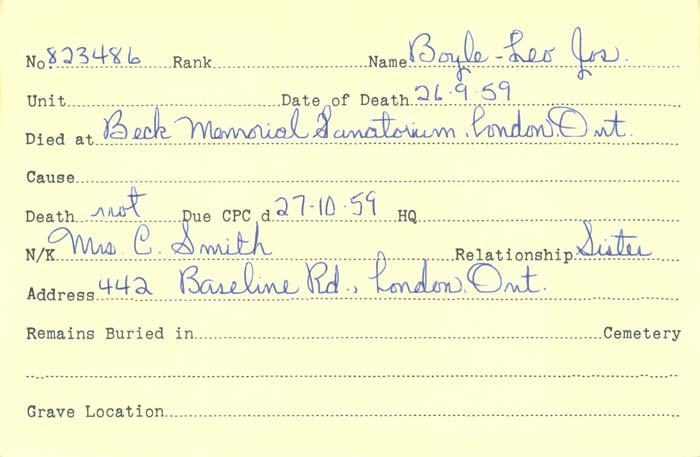 No. 823486 Rank Name Boyle - Leo Jos.
Unit Date of Death 26.9.59
Died at Beck Memorial Sanatorium, London, Ont.
Cause
Death not Due CPC d 27-10-59 HQ
N/K Mrs C. Smith Relationship Sister
Address 442 Baseline Rd., London, Ont.
Remains Buried in Cemetery
Grave Location